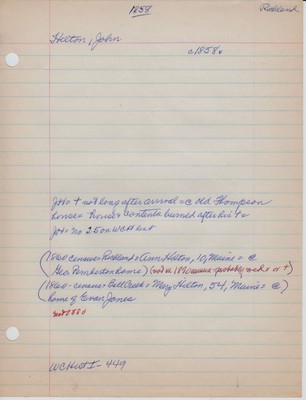 1858 Richland
Hilton, John
c1858v
not long after arrival = c old Thompson
house = house + contents burned after his
no 2500 WCHist
(1860 census = Richland = Ann Hilton, 10, Maine = @
Geo Pemberton home) (not in 1870 census - probably
(1860 - census = Bell Creek = Mary Hilton, 54, Maine = @
home of Evan Jones
not 1880
WCHist I - 449